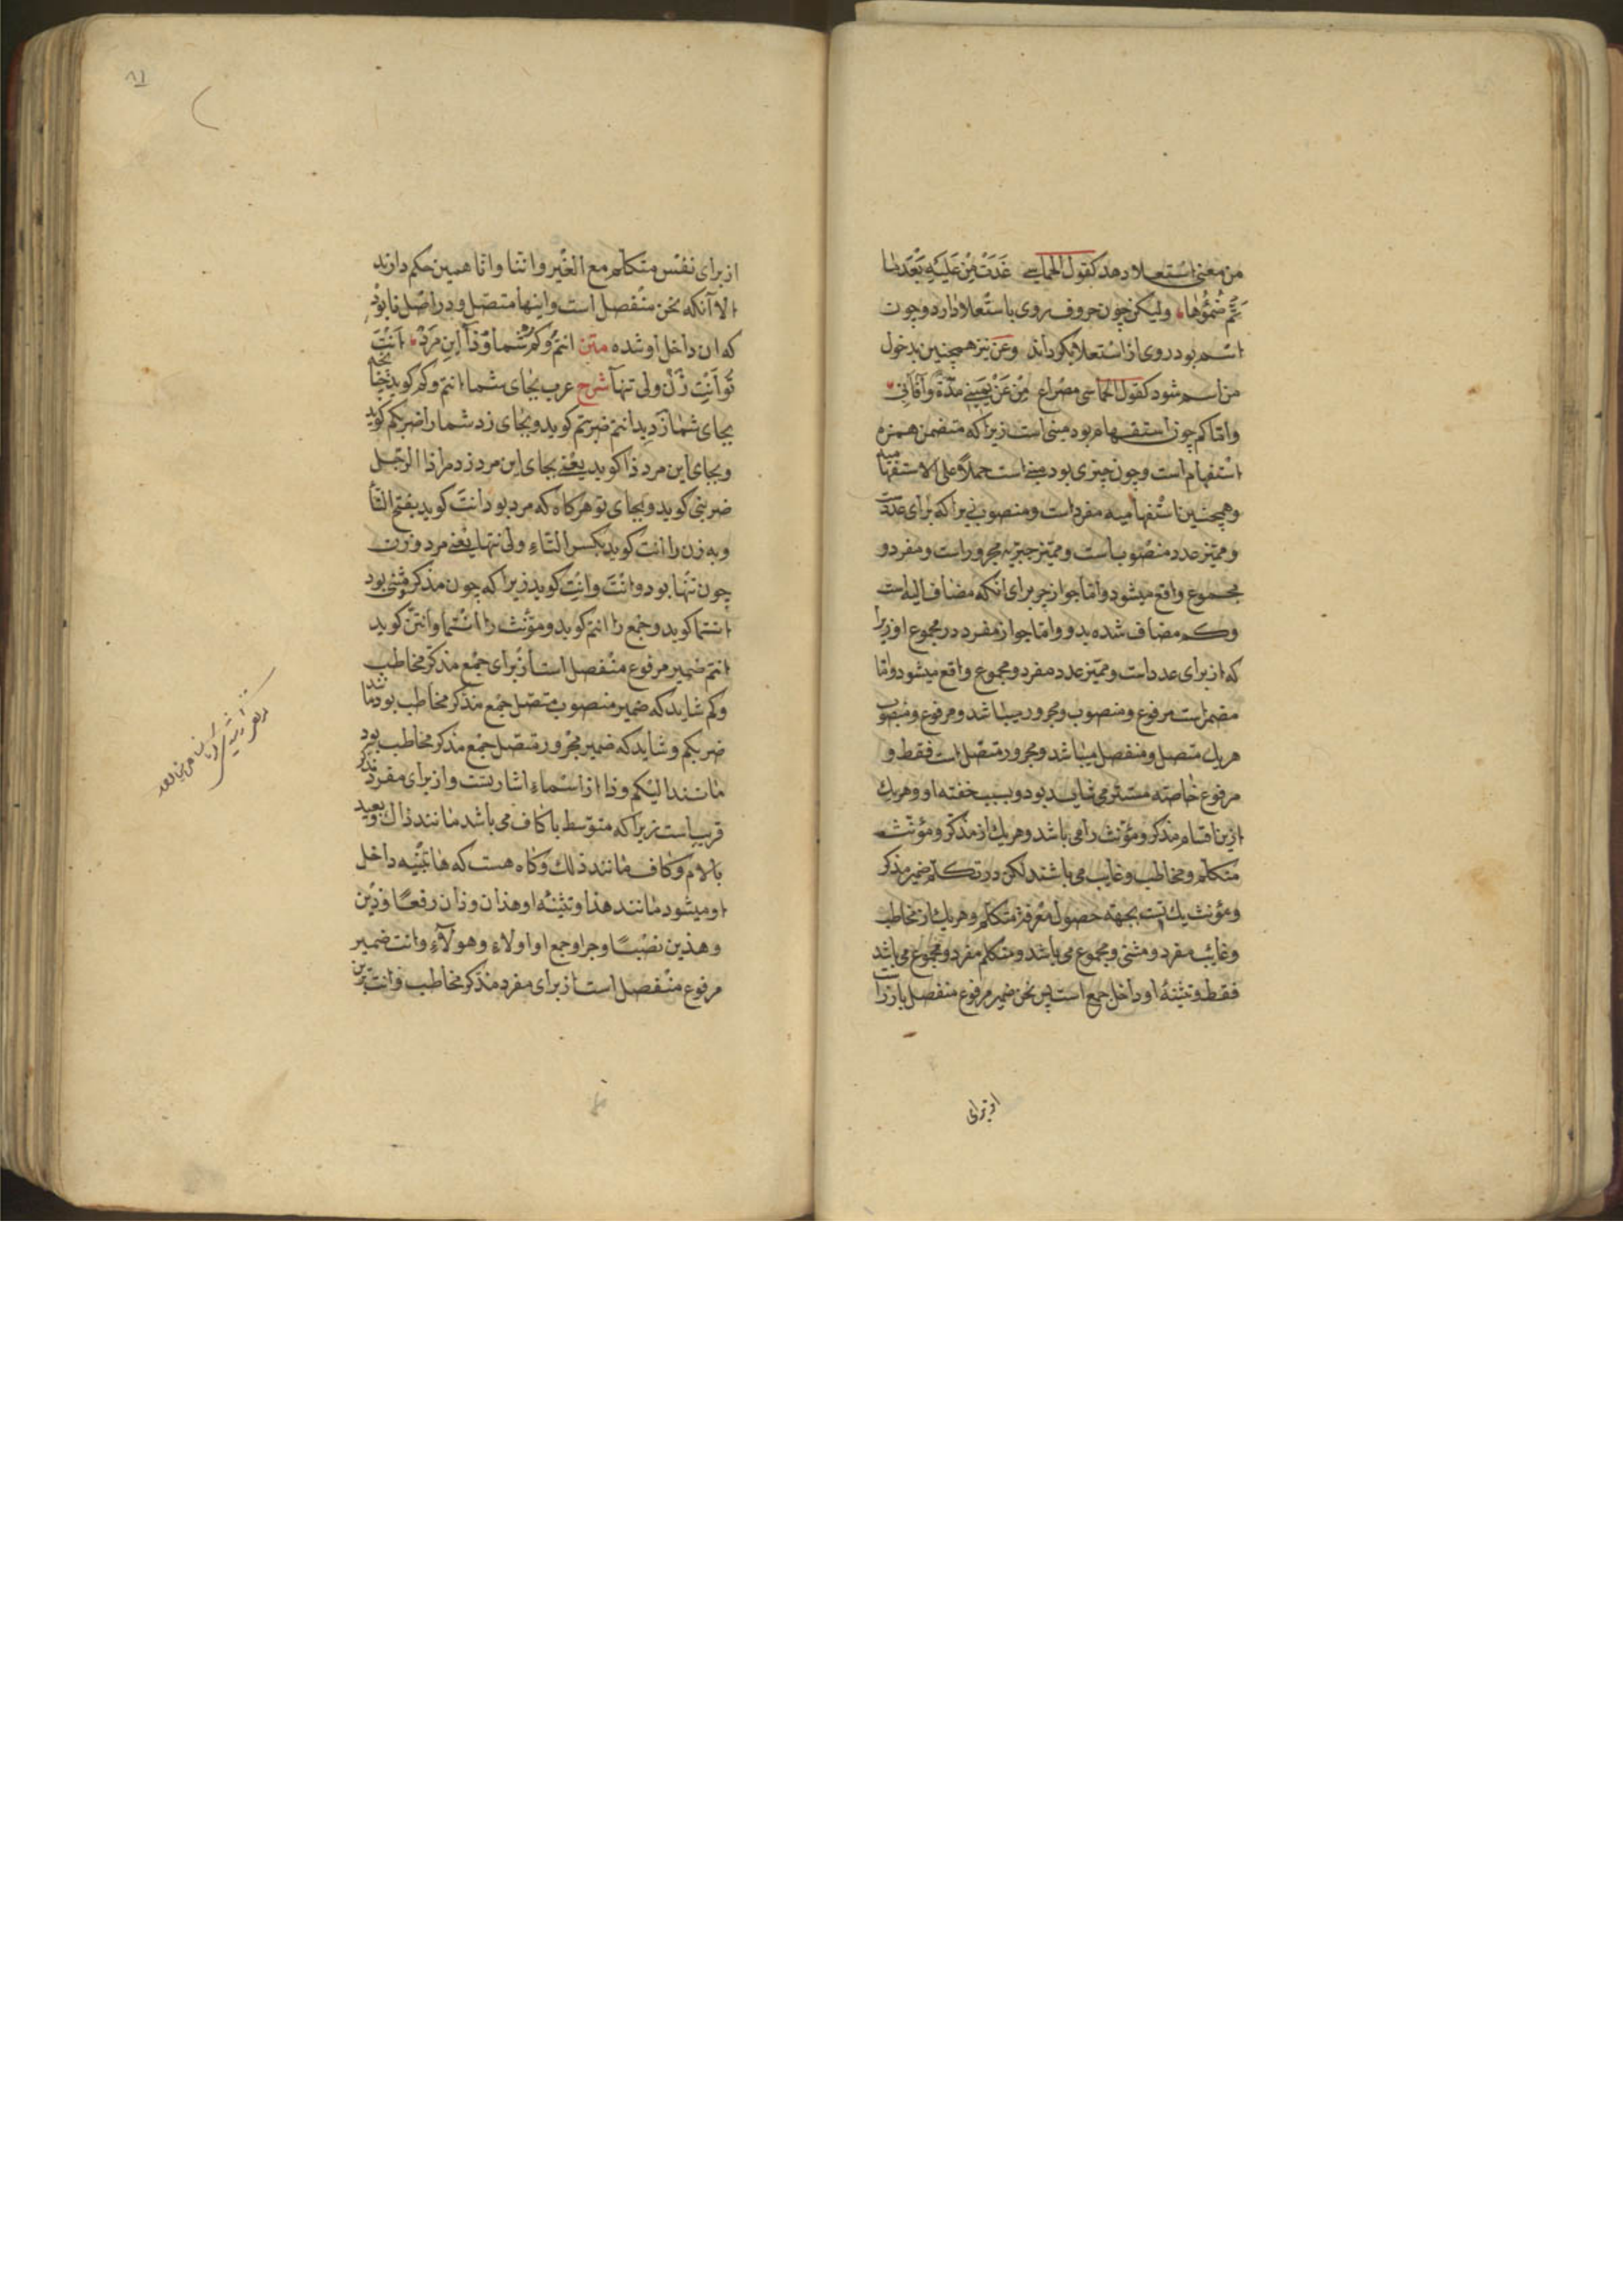 من معنی استعلا دهد کقول الحماسی غَدَتْ مِنْ عَلَیْهِ بَعْدَ ما
تَمَّ ضُمْؤُها ولیکن چون حروف روی باستعلا دارد و چون
اسم بود روی از استعلا بگرداند وعن نیز همچنین بدخول
من اسم شود کقول الحماسی مصراع مِنْ عَنْ یَمِینی مدّة وآفآنی
واما کم چون استفهام بود مبنی است زیرا که متضمن همزه
استفهام است وچون خبری بود مبنی است حملاً علی الاستفهامیه
وهمچنین استفهامیه مفرد است ومنصوب زیرا که برای عددست
وممیّز عدد منصوب است وممیّز خبریه مجرور است ومفرد و
مجموع واقع میشود واما جواز جر برای آنکه مضاف الیه است
وکم مضاف شده بدو واما جواز مفرد در مجموع او زیرا
که از برای عدد است وممیّز عدد مفرد ومجموع واقع میشود واما
مضمر است مرفوع ومنصوب ومجرور میباشد ومرفوع ومنصوب
هریك متصل ومنفصل میباشد ومجرور متصل است فقط و
مرفوع خاصته مستتر می‌شاید بود وبسبب خفته او وهریك
ازین اقسام مذکر ومؤنث را می باشد وهریك از مذکر ومؤنث
متکلم ومخاطب وغایب می باشند لکن در تکلم ضمیر مذکر
ومؤنث یك است بجهة حصول معرفة متکلم وهریك از مخاطب
وغایب مفرد ومثنی ومجموع می باشد ومتکلم مفرد ومجموع می باشد
فقط وتثنیهٔ او داخل جمع است پس نحن ضمیر مرفوع منفصل بارز است
از برای
٨١
از برای نفس متکلم مع الغیر واننا وانّا همین حکم دارند
الا آنکه نحن منفصل است واینها متصل ودر اصل نا بود
که ان داخل او شده متن انتم وکم شما وذا این مرد اَنْتَ
تو اَنْتِ زن ولی تنها شرح عرب بجای شما انتم وکم گوید
بجای شما زدید انتم ضربتم گوید وبجای زد شما را ضربکم گوید
وبجای این مرد ذا گوید یعنی بجای این مرد زد مرا ذا الرجل
ضربنی گوید وبجای تو هرکاه که مرد بود انتَ گوید بفتح التّا
وبه زن را انتِ گوید بکسر التاء ولی تنها یعنی مرد وزن
چون تنها بود وانتَ وانتِ گوید زیرا که چون مذکر مثنی بود
انتما گوید وجمع را انتم گوید ومؤنث را انتما وانتنّ گوید
انتم ضمیر مرفوع منفصل است از برای جمع مذکر مخاطب
وکم شاید که ضمیر منصوب متصل جمع مذکر مخاطب بود مانند
ضربکم وشاید که ضمیر مجرور متصل جمع مذکر مخاطب بود
مانند الیکم وذا از اسماء اشارتست واز برای مفرد مذکر
قریب است زیرا که متوسط با کاف می باشد مانند ذاك وبعید
بالام وکاف مانند ذلك وکاه هست که ها تنبیه داخل
او میشود مانند هذا وتثنیهٔ او هذان وذان رفعاً وذین
وهذین نصباً وجرا وجمع او اولاء وهولآء وانت ضمیر
مرفوع منفصل است از برای مفرد مذکر مخاطب وانت